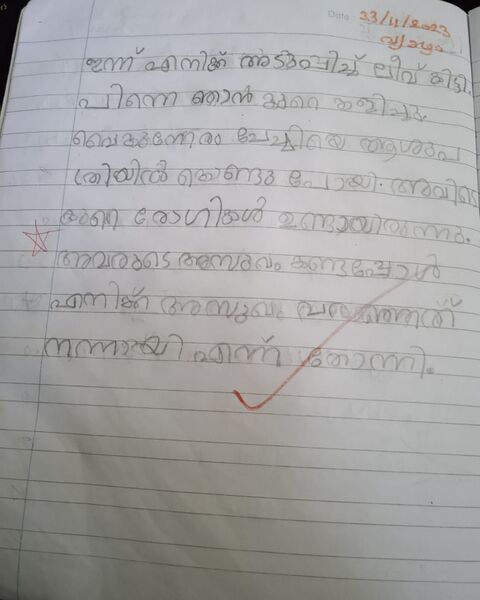 Date 23/11/2023
വ്യാഴം
ഇന്ന് എനിക്ക് അടുപ്പിച്ച് ലീവ് കിട്ടി.
പിന്നെ ഞാൻ കുറെ കളിച്ചു.
വൈകുന്നേരം ചേച്ചിയെ ആശുപ
ത്രിയിൽ കൊണ്ടു പോയി. അവിടെ
കുറെ രോഗികൾ ഉണ്ടായിരുന്നു.
അവരുടെ അസുഖം കണ്ടപ്പോൾ
എനിക്ക് അസുഖം
നന്നായി എന്ന് തോന്നി.